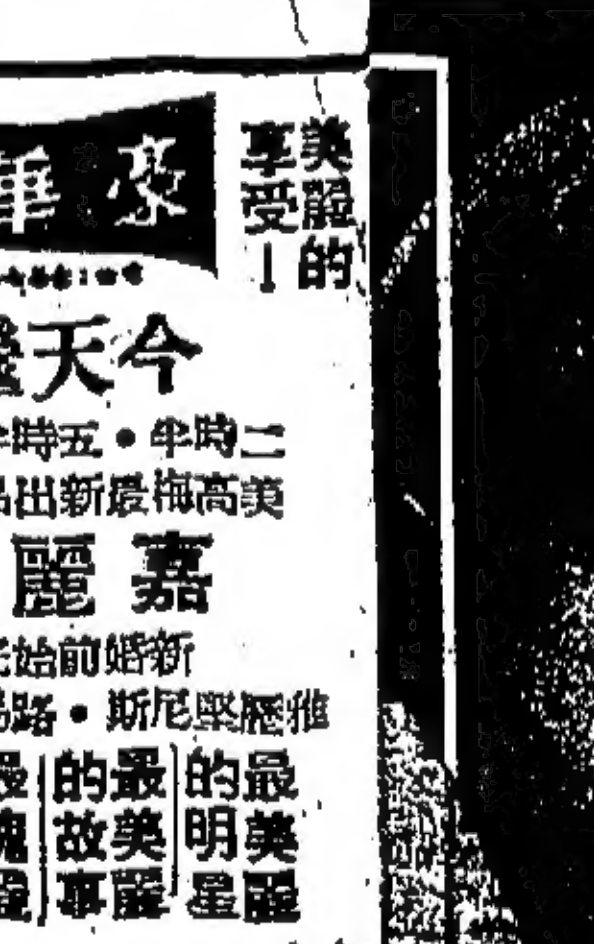 豪華
美麗的
享受！
今天
二時半・五時半
美高梅最新出品
嘉麗
新婚前始
雅歷堅尼斯・路易
最美麗的明星
最美麗的故事
最